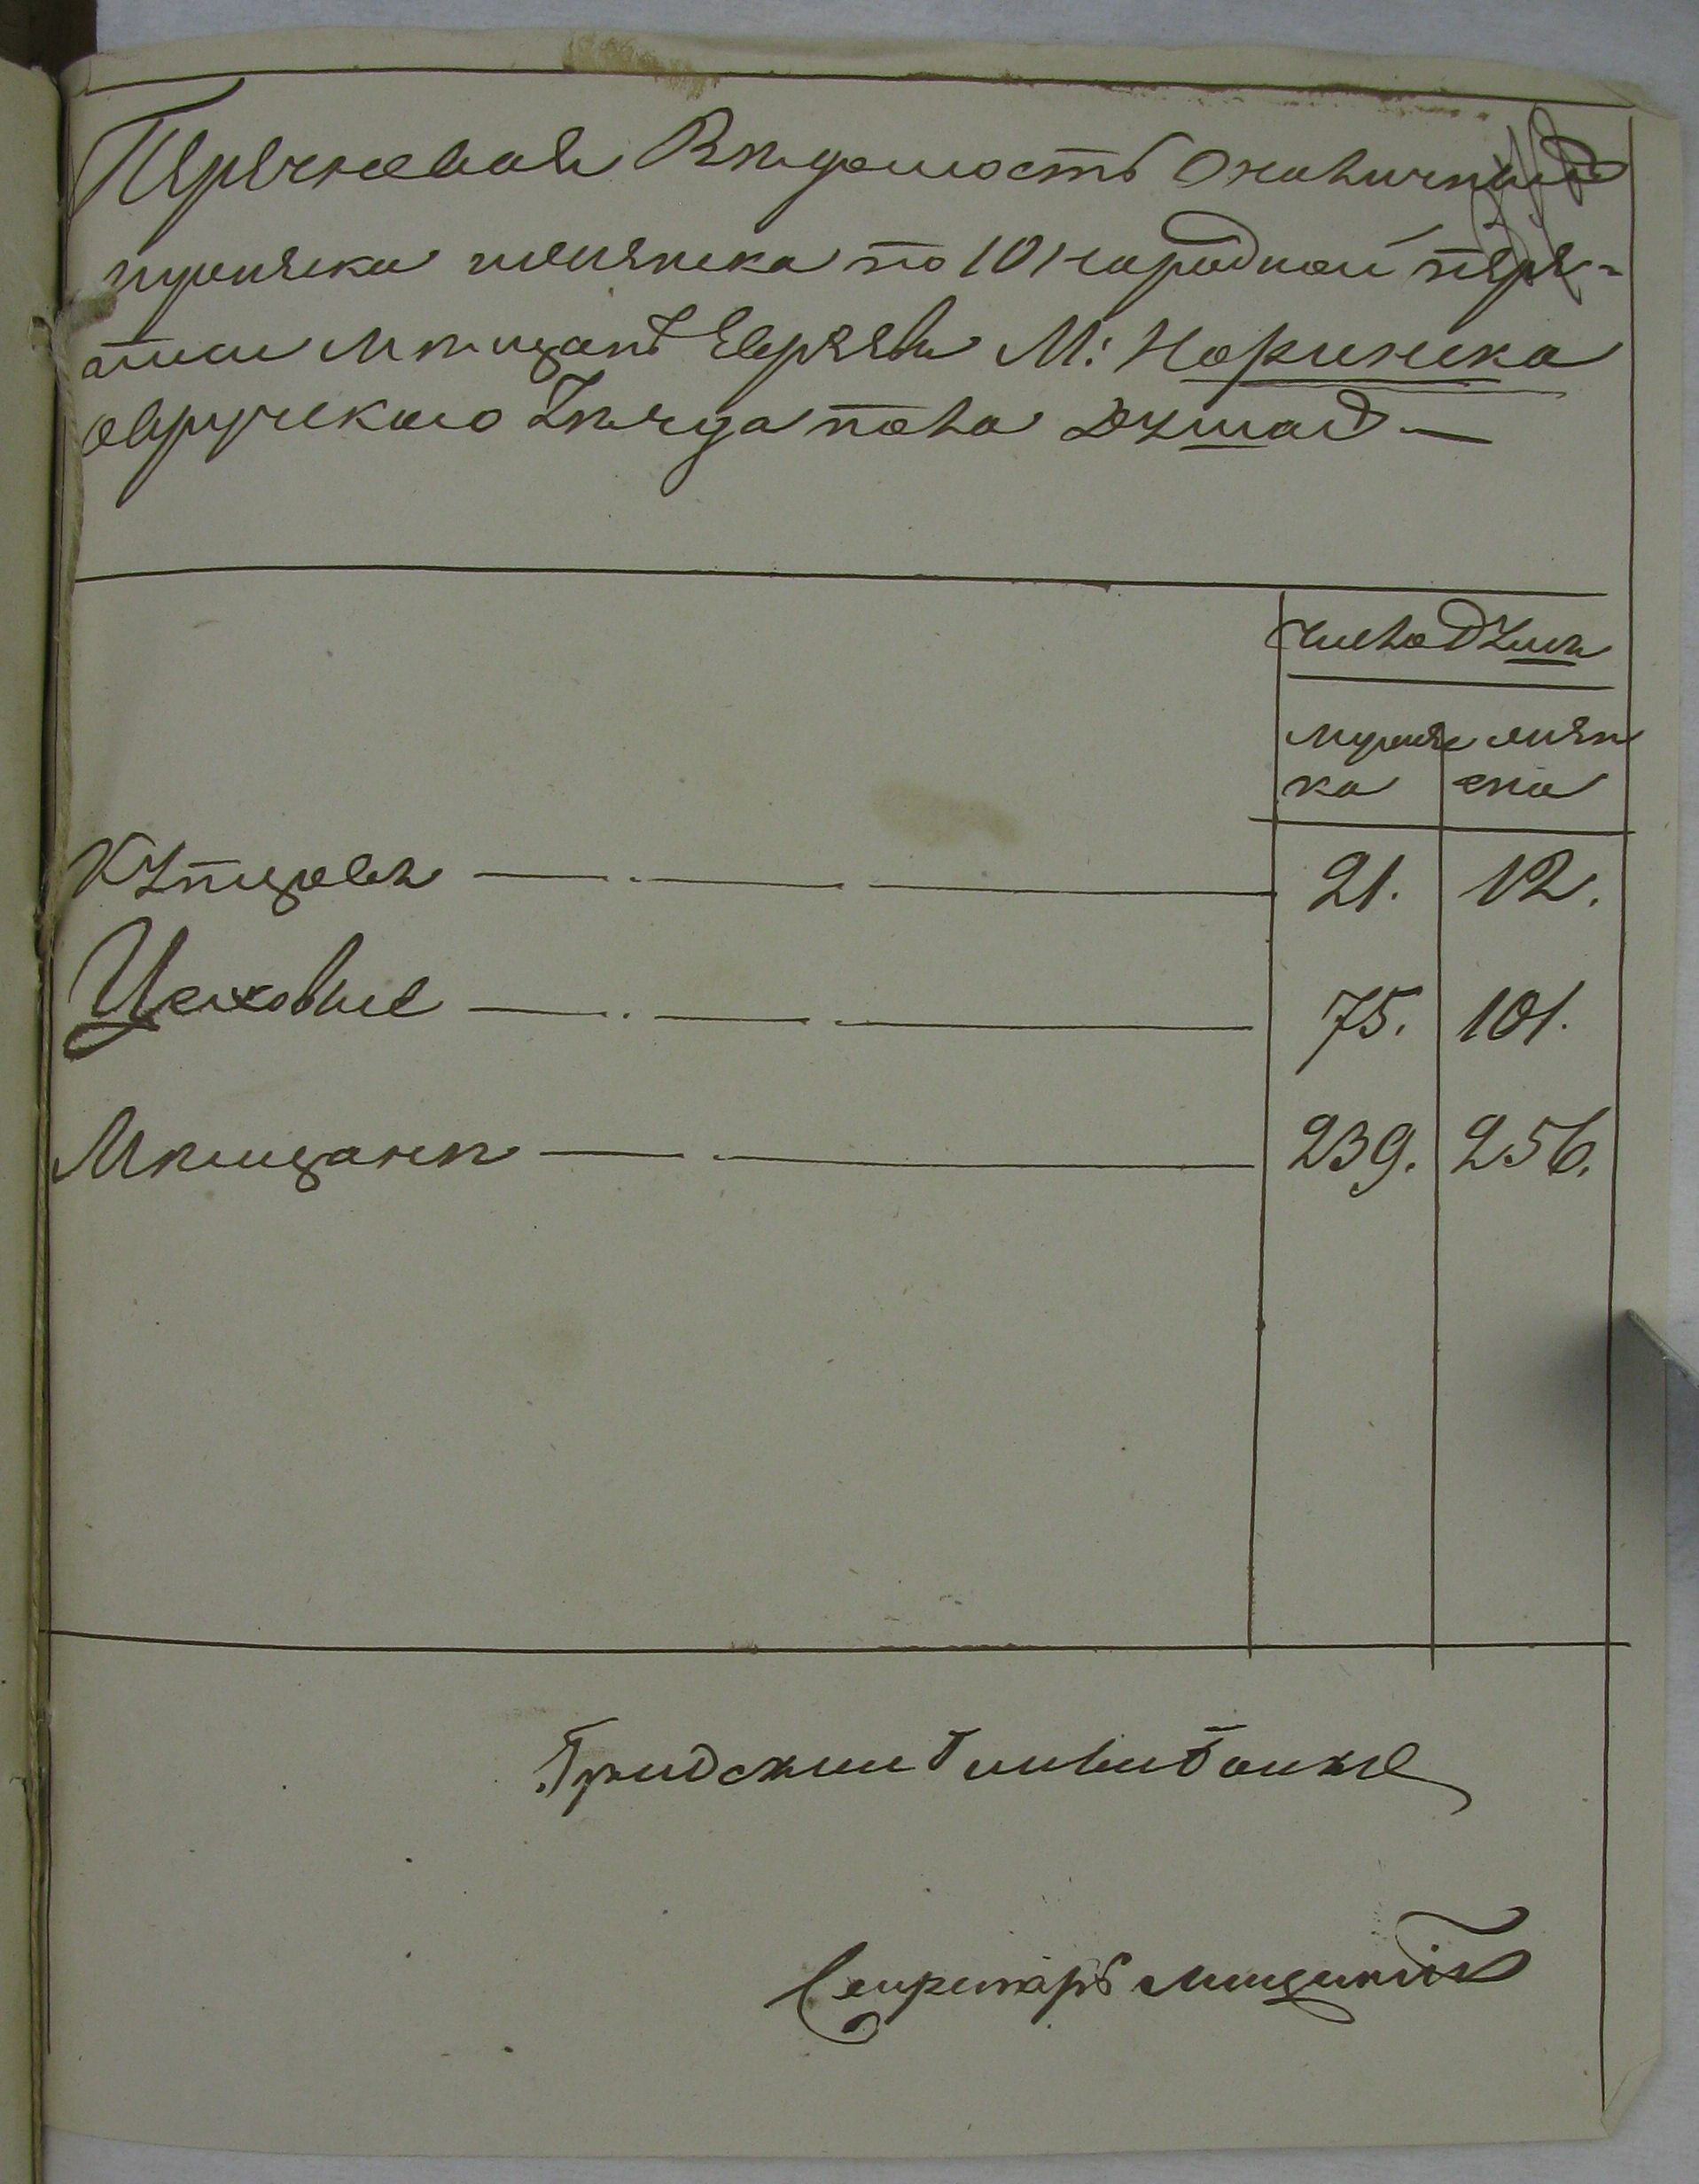 Перечневая Ведомость о наличныхъ
мужеска и женска по 10 народной пере-
писи мещанъ Евреевъ М: Норинска
овручскаго Уезда пола душахъ —
Число Душъ
мужес женс
ка ка
Купцовъ 21. 12.
Цеховые 75. 101.
Мещанъ 239. 256.
Секретарь